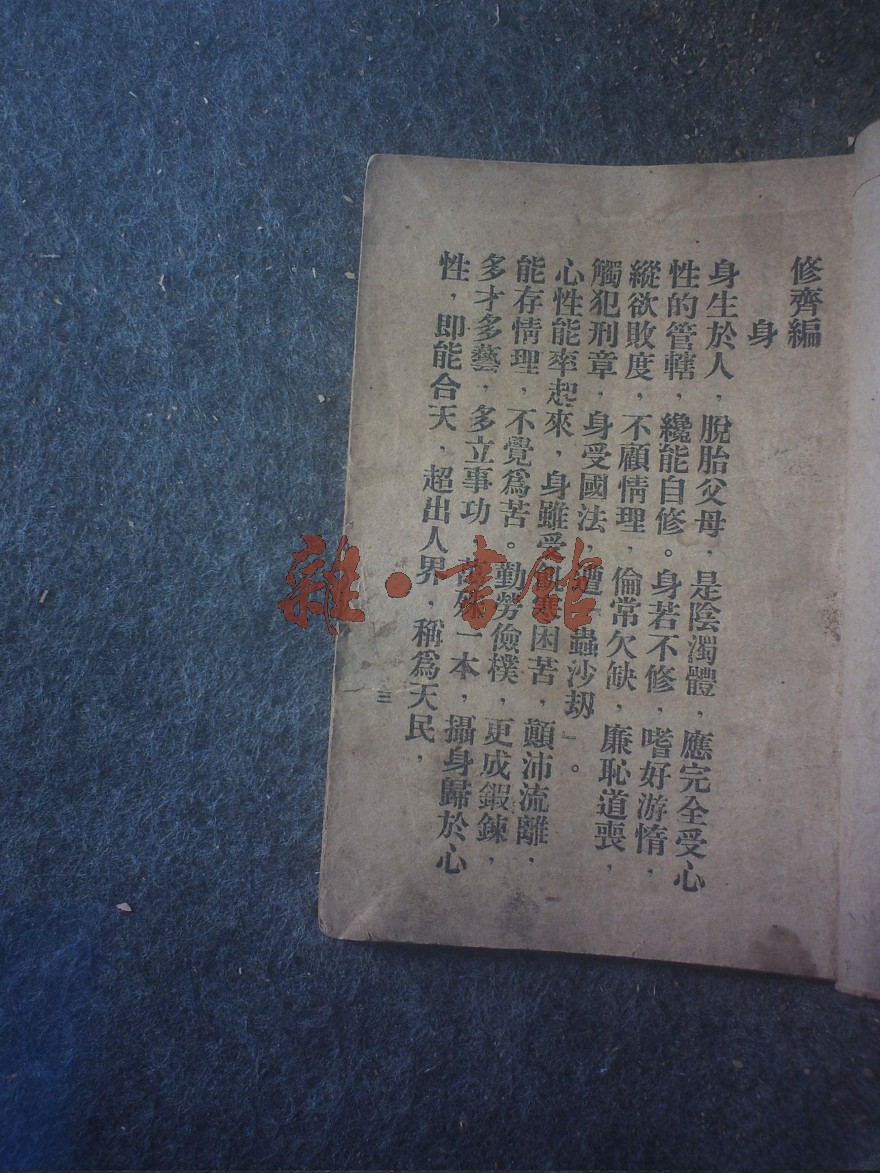 修齊編
身
身生於人，脫胎父母，是陰濁體，應完全受心
性的管轄，纔能自修。身若不修，嗜好游惰，
縱欲敗度，不顧情理，倫常欠缺，廉恥道喪，
觸犯刑章，身受國法，遭蟲沙劫』。
心性能率起來，身雖受困苦，顛沛流離，
能存情理，不覺爲苦。勤勞儉樸，更成鍜鍊，
多才多藝，多立事功，一本，攝身歸於心
性，即能合天，超出人界，稱爲天民，
三
雜·書館